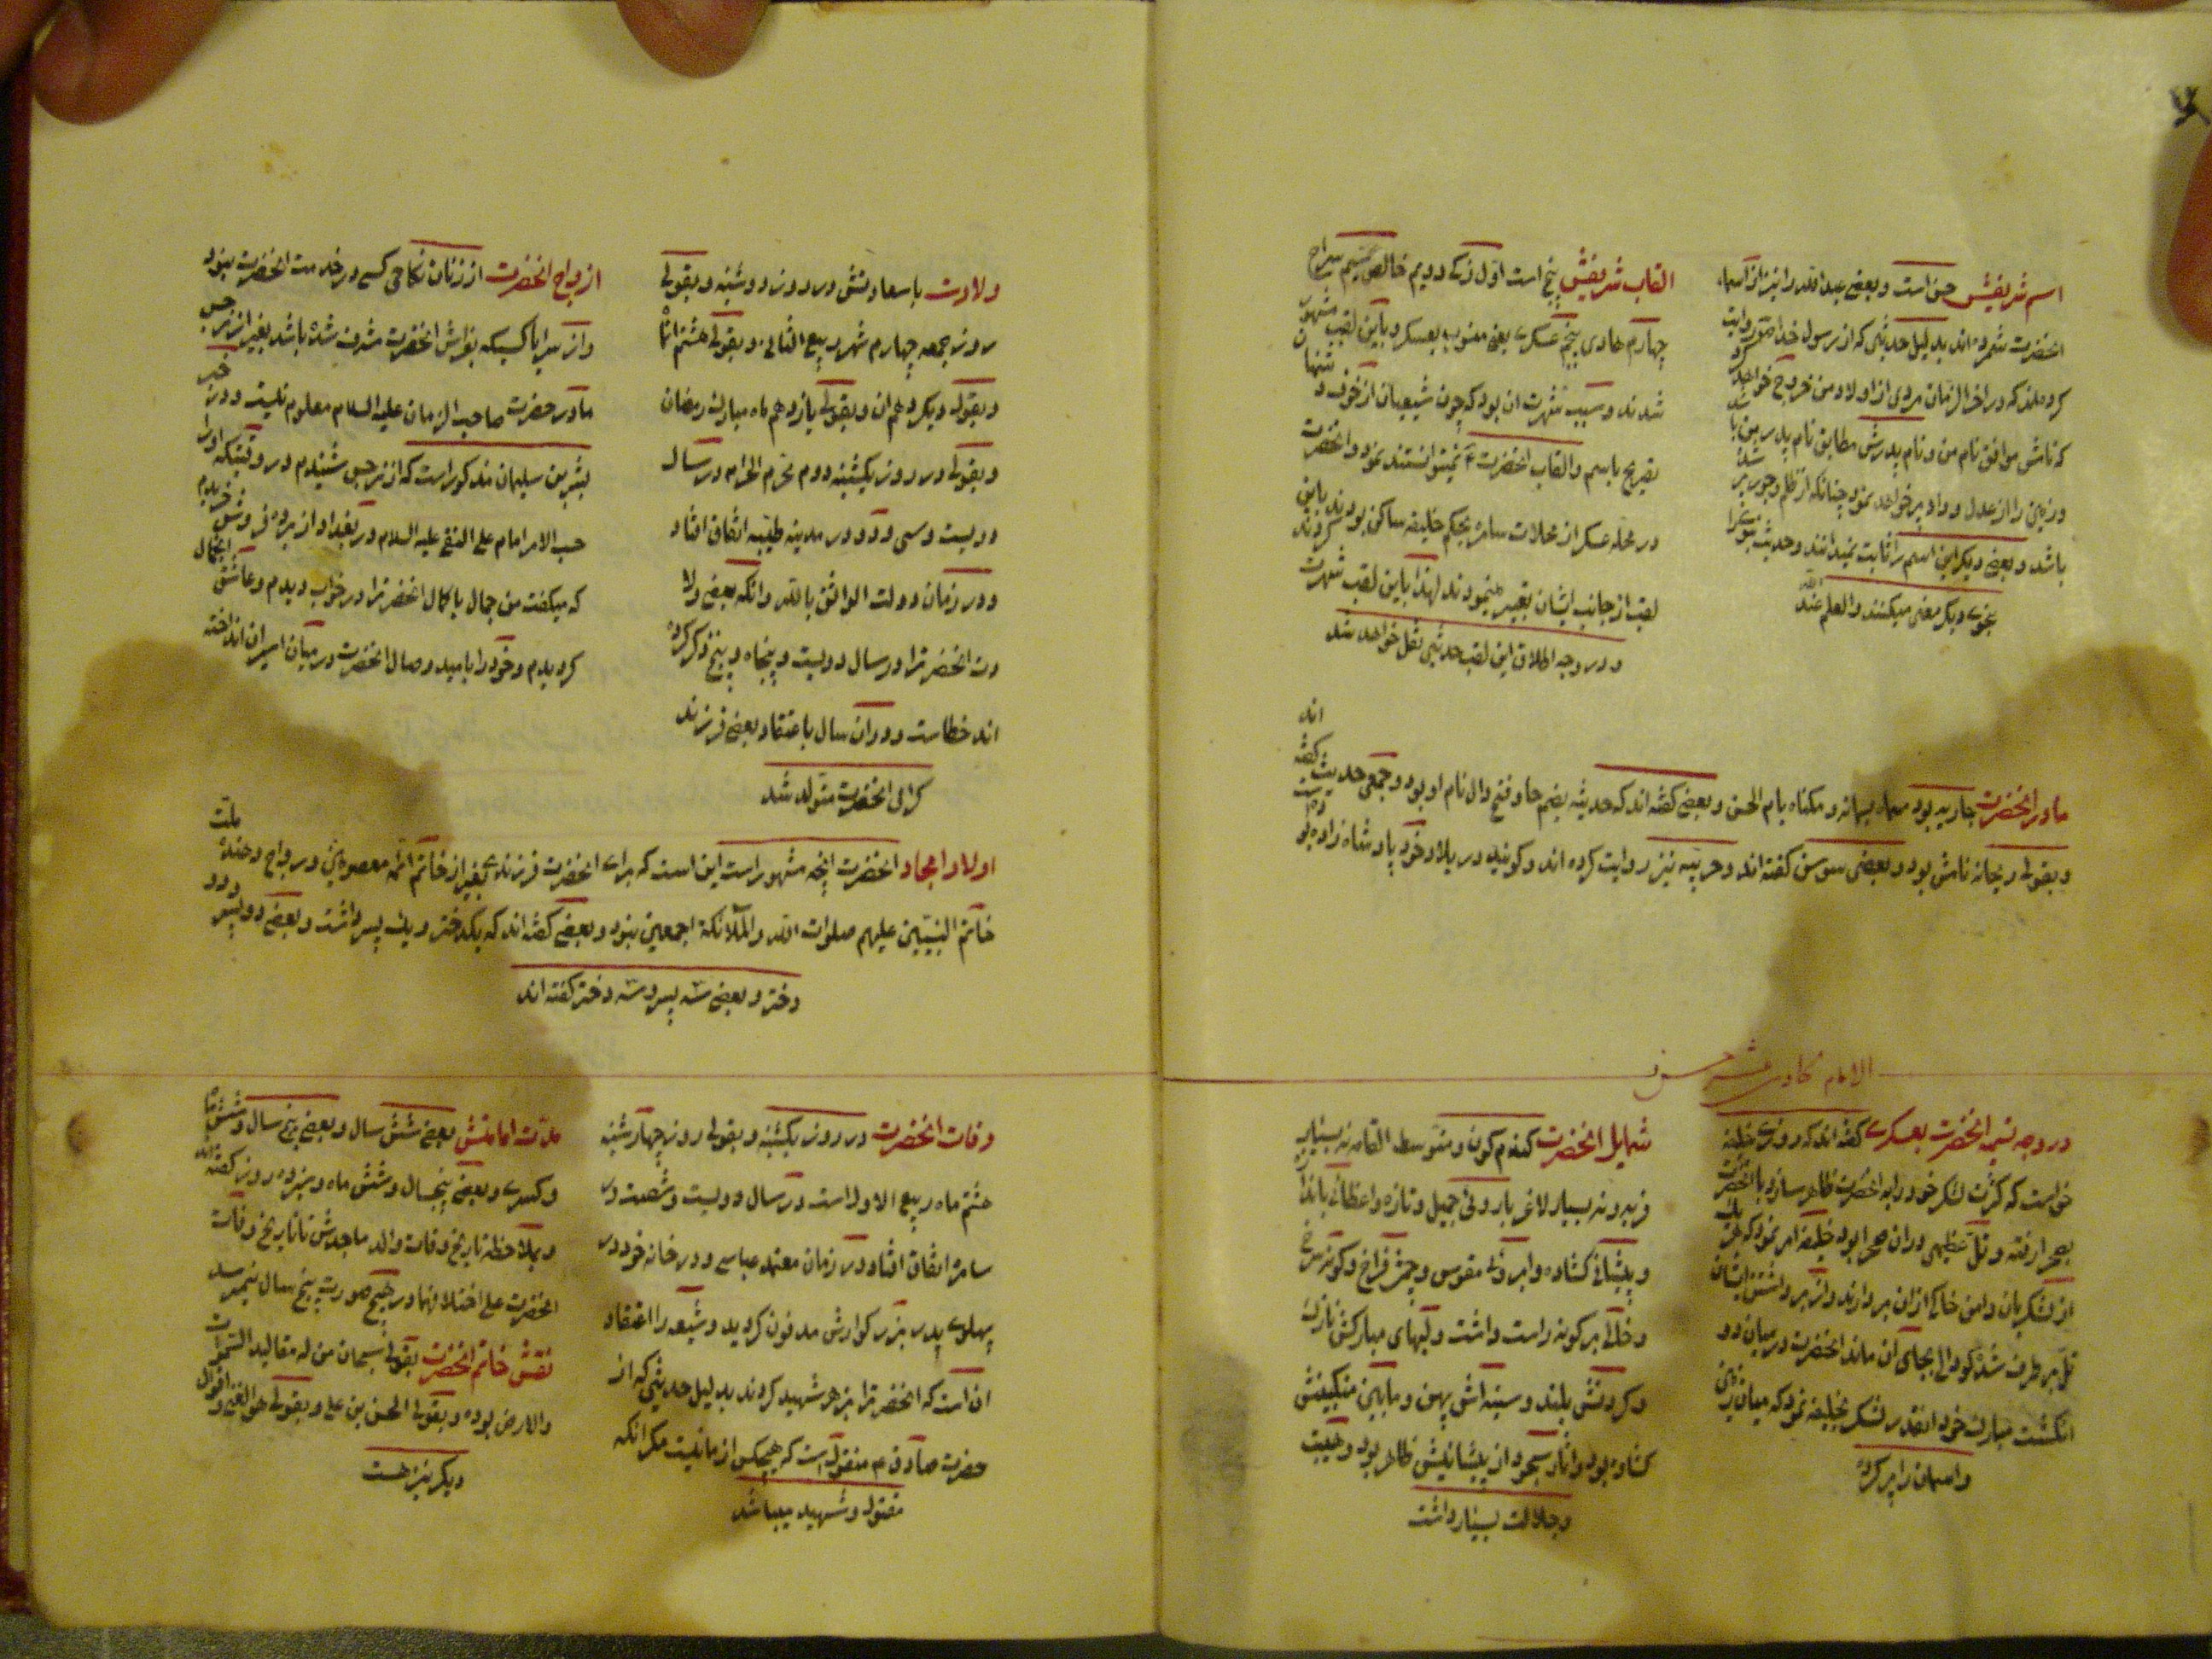 اسم شریفش حسن است و بعضی عبدالله را نیز از اسماء
انحضرت شمرده اند بدلیل حدیثی که از رسول خدا ص روایت
کرده اند که در اخر الزمان مردی از اولاد من خروج خواهد کرد
که نامش موافق نام من و نام پدرش مطابق نام پدر من باشد
و زمین را از عدل و داد پر خواهد نمود چنانکه از ظلم و جور پر شده
باشد و بعضی دیکر این اسم را ثابت نمیدانند و حدیث مذکور را
بنحوی دیکر معنی میکنند والعلم عند الله
القاب شریفش پنج است اول زکی دویم خالص سیم سراج
چهارم هادی پنجم عسکری یعنی منسوب بعسکر و باین لقب مشهور
شدند و سبب شهرت ان بود که چون شیعیان از خوف دشمنان
تصریح باسم و القاب انحضرت نمیتوانستند نمود و انحضرت
در محله عسکر از محلات سامره بحکم خلیفه ساکن بودند باین
لقب از جانب ایشان تعبیر مینمودند لهذا باین لقب شهرت کردند
و در وجه اطلاق این لقب حدیثی نقل خواهد شد
مادر انحضرت جاریه بود مسماه بسمانه و مکناه بام الحسن و بعضی کفته اند که حدیثه بضم حا و فتح دال نام او بود و جمعی حدیث کفته اند
و بقولی ریحانه نامش بود و بعضی سوسن کفته اند و حربیه نیز روایت کرده اند و کویند در بلاد خود پادشاه زاده بود
الامام حسن
در وجه تسمیه انحضرت بعسکری کفته اند که روزی خلیفه
خواست که کثرت لشکر خود را به انحضرت ظاهر سازد با انحضرت
بصحرا رفته و تل عظیمی در ان صحرا بود خلیفه امر نمود که هر یک
از لشکریان دامن خاکی از ان بردارند و از برداشتن ایشان
تل بر طرف شده کودالی بجای ان ماند انحضرت در میان دو
انکشت مبارک خود انقدر لشکر بخلیفه نمود که میان زمین
و اسمان را پر کرده
شمایل انحضرت کندم کون و متوسط القامه نه بسیار
فربه و نه بسیار لاغر با روئی جمیل و تازه و اعظائی باندازه
و پیشانی کشاده و ابروئی مقوس و چشم فراخ و کونه سرخ
و خالی بر کونه راست داشت و لبهای مبارکش نازک
و کردنش بلند و سینه اش پهن و مابین منکبینش
کشاده بود و اثار سجود از پیشانیش ظاهر بود و هیبت
و جلالت بسیار داشت
ولادت باسعادتش در روز دوشنبه و بقولی
روز جمعه چهارم شهر ربیع الثانی و بقولی هشتم انماه
و بقولی دیکر دهم ان و بقولی یازدهم ماه مبارک رمضان
و بقولی در روز یکشنبه دوم محرم الحرام در سال
دویست و سی و دو در مدینه طیبه اتفاق افتاد
و در زمان دولت الواثق بالله و انکه بعضی ولا
دت انحضرت را در سال دویست و پنجاه و پنج ذکر کرده
اند خطاست و در ان سال باعتقاد بعضی فرزند
کرامی انحضرت متولد شد
ازواج انحضرت از زنان نکاحی کسی در خدمت انحضرت نبود
و از سرایا کسیکه بفراش انحضرت مشرف شده باشد بغیر از نرجس
مادر حضرت صاحب الزمان علیه السلام معلوم نیست و در خبر
بشر بن سلیمان مذکور است که از نرجس شنیدم در وقتیکه او را
حسب الامر امام علی النقی علیه السلام در بغداد از برده فروش خریدم
که میکفت من جمال با کمال انحضرت را در خواب دیدم و عاشق انجمال
کردیدم و خود را بامید وصال انحضرت در میان اسیران انداخته
اولاد امجاد انحضرت انچه مشهور است این است که برای انحضرت فرزندی بغیر از خاتم ائمه معصومین و رواج دهنده ملت
خاتم النبیین علیهم صلوات الله والملائکة اجمعین نبود و بعضی کفته اند که یکدختر و یک پسر داشت و بعضی دو پسر و دو
دختر و بعضی سه پسر و سه دختر کفته اند
وفات انحضرت در روز یکشنبه و بقولی روز چهارشنبه
هشتم ماه ربیع الاول است در سال دویست و شصت در
سامره اتفاق افتاد در زمان معتمد عباسی و در خانه خود در
پهلوی پدر بزرکوارش مدفون کردید و شیعه را اعتقاد
ان است که انحضرت را بزهر شهید کردند بدلیل حدیثی که از
حضرت صادق ع منقول است که هیچکس از ما نیست مکر انکه
مقتول و شهید میباشد
مدت امامتش بعضی شش سال و بعضی پنج سال و شش ماه
و کسری و بعضی پنجسال و شش ماه و سیزده روز کفته اند
و بملاحظه تاریخ وفات والد ماجدش تا تاریخ وفات
انحضرت علی اختلافها در هیچ صورت پنج سال نمیرسد
نقش خاتم انحضرت بقولی سبحان من له مقالید السموات
والارض بوده و بقولی الحسن بن علی و بقولی هو الغنی و اقوال
دیکر نیز هست